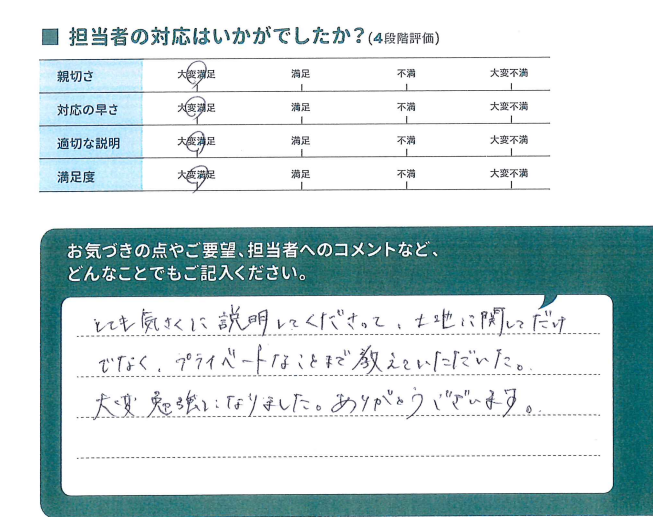 ■ 担当者の対応はいかがでしたか？(4段階評価)
親切さ 大変満足 満足 不満 大変不満
対応の早さ 大変満足 満足 不満 大変不満
適切な説明 大変満足 満足 不満 大変不満
満足度 大変満足 満足 不満 大変不満
お気づきの点やご要望、担当者へのコメントなど、
どんなことでもご記入ください。
とても気さくに説明してくださって、土地に関してだけ
でなく、プライベートなことまで教えていただいた。
大変勉強になりました。ありがとうございます。